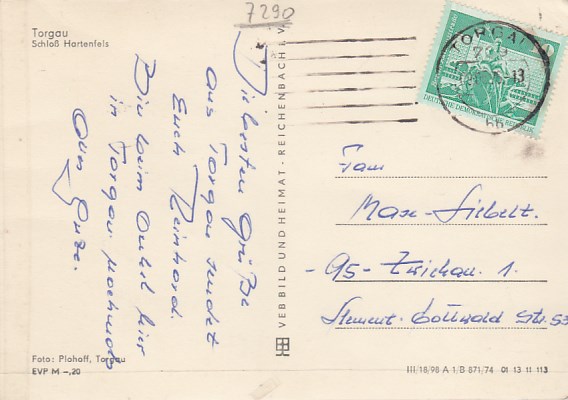 7290
Torgau
Schloß Hartenfels
Die besten Grüße
aus Torgau sendet
Euch Reinhard.
Bin beim Onkel hier
in Torgau.
Alles Gute.
Foto: Plohoff, Torgau
EVP M -,20
VEB BILD UND HEIMAT · REICHENBACH i. V.
TORGAU
DEUTSCHE DEMOKRATISCHE REPUBLIK
Fam
Max Siebelt.
-95- Zwickau. 1.
Klement-Gottwald Str. 53
III/18/98 A 1/B 871/74 01 13 11 113